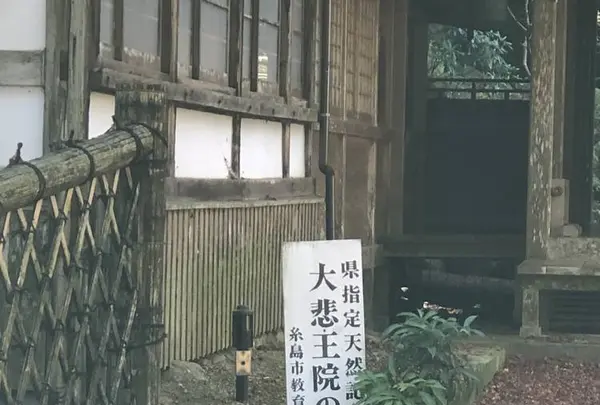 県指定天然記
大悲王院の
糸島市教育